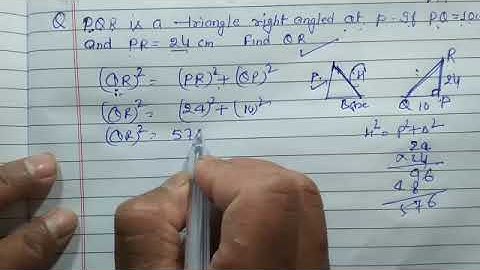 Q PQR is a triangle right angled at P. If PQ=10
and PR = 24 cm Find QR
(QR)² = (PR)²+(QP)²
(QR)² = (24)²+(10)²
(QR)² = 57
P H
Base
R
24
Q 10 P
H² = P²+B²
24
×24
96
48
576